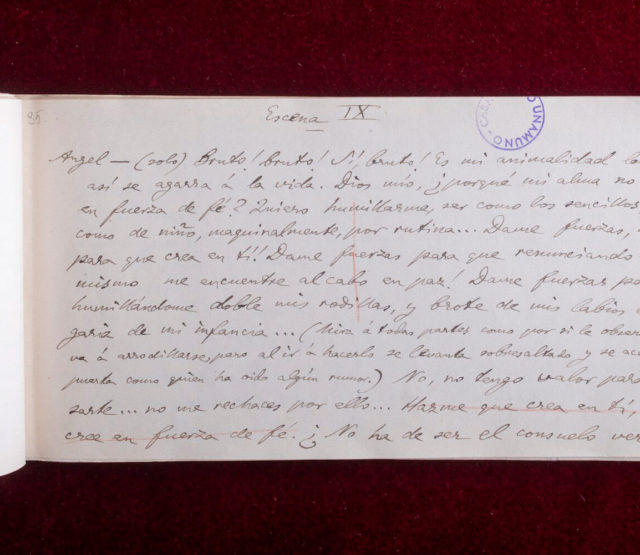 95.
Escena IX
CAS UNAMUNO
Angel — (solo) Bruto! bruto! Sí, bruto! Es mi animalidad la
así se agarra á la vida. Dios mío, ¿porqué mi alma no
en fuerza de fé? Quiero humillarme, ser como los sencillos
como de niño, maquinalmente, por rutina... Dame fuerzas,
para que crea en ti! Dame fuerzas para que renunciando
mismo me encuentre al cabo en paz! Dame fuerzas pa
humillándome doble mis rodillas, y brote de mis labios
garia de mi infancia... (Mira á todas partes como por si le obser
va á arrodillarse, pero al ir á hacerlo se levanta sobresaltado y se ac
puerta como quien ha oido algún rumor.) No, no tengo valor para
sarte... no me rechaces por ello... Hazme que crea en tí,
cree en fuerza de fé. ¿No ha de ser el consuelo ver